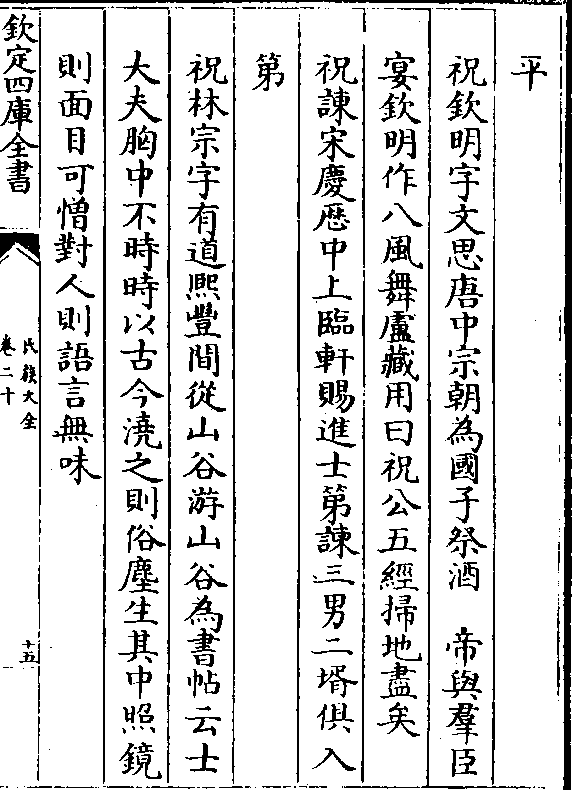 平
祝欽明字文思唐中宗朝為國子祭酒　帝與羣臣
宴欽明作八風舞盧藏用曰祝公五經掃地盡矣
祝諫宋慶厯中上臨軒賜進士第諫三男二壻俱入
第
祝林宗字有道熙豐間從山谷游山谷為書帖云士
大夫胸中不時時以古今澆之則俗塵生其中照鏡
則面目可憎對人則語言無味
欽定四庫全書
氏族大全
卷二十
十五